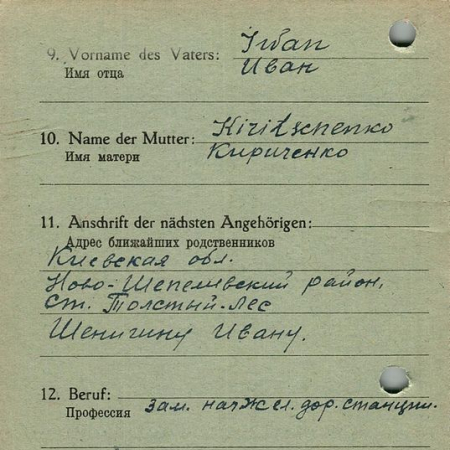 9. Vorname des Vaters: Iwan
Имя отца Иван
10. Name der Mutter: Kiritschenko
Имя матери Кириченко
11. Anschrift der nächsten Angehörigen:
Адрес ближайших родственников
Киевская обл.
Ново-Шепелический район,
ст. Толстый-Лес
Шенигину Ивану.
12. Beruf:
Профессия зам. начжел. дор. станции.